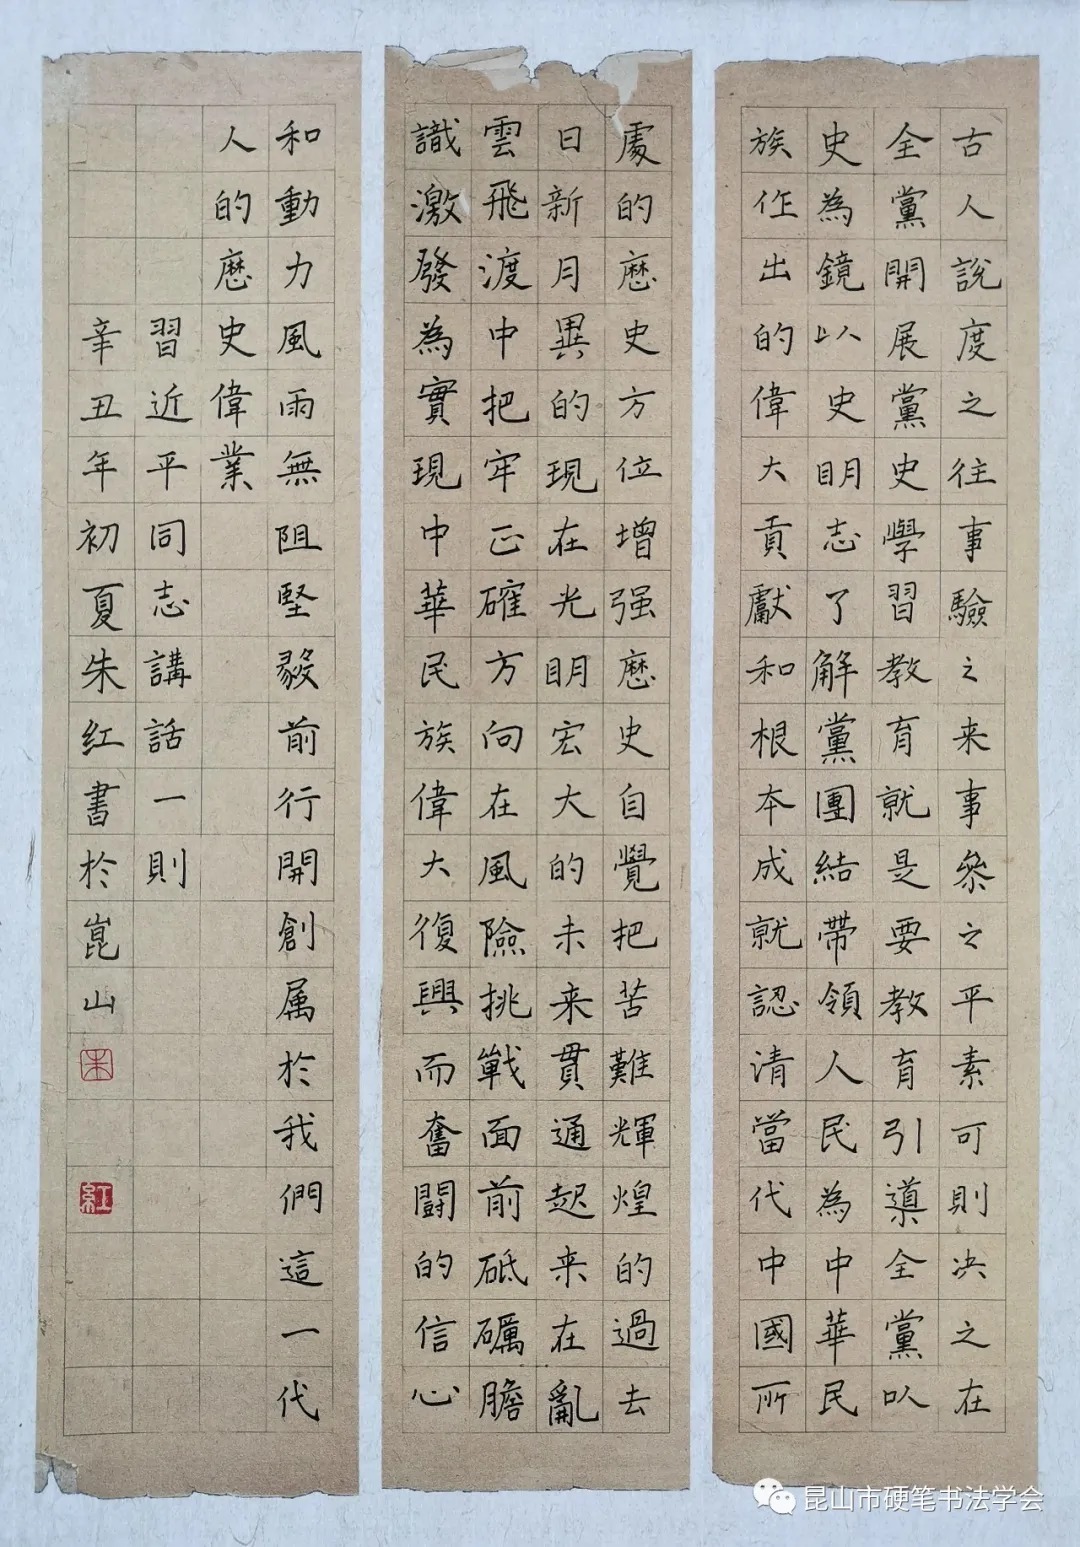 古人說度之往事驗之来事叅之平素可則决之在
全黨開展黨史學習教育就是要教育引導全黨以
史為鏡以史明志了解黨團結帶領人民為中華民
族作出的偉大貢獻和根本成就認清當代中國所
處的歷史方位增强歷史自覺把苦難輝煌的過去
日新月異的現在光明宏大的未来貫通起来在亂
雲飛渡中把牢正確方向在風險挑戰面前砥礪膽
識激發為實現中華民族偉大復興而奮鬪的信心
和動力風雨無阻堅毅前行開創属於我們這一代
人的歷史偉業
習近平同志講話一則
辛丑年初夏朱红書於崑山
朱
紅
昆山市硬笔书法学会